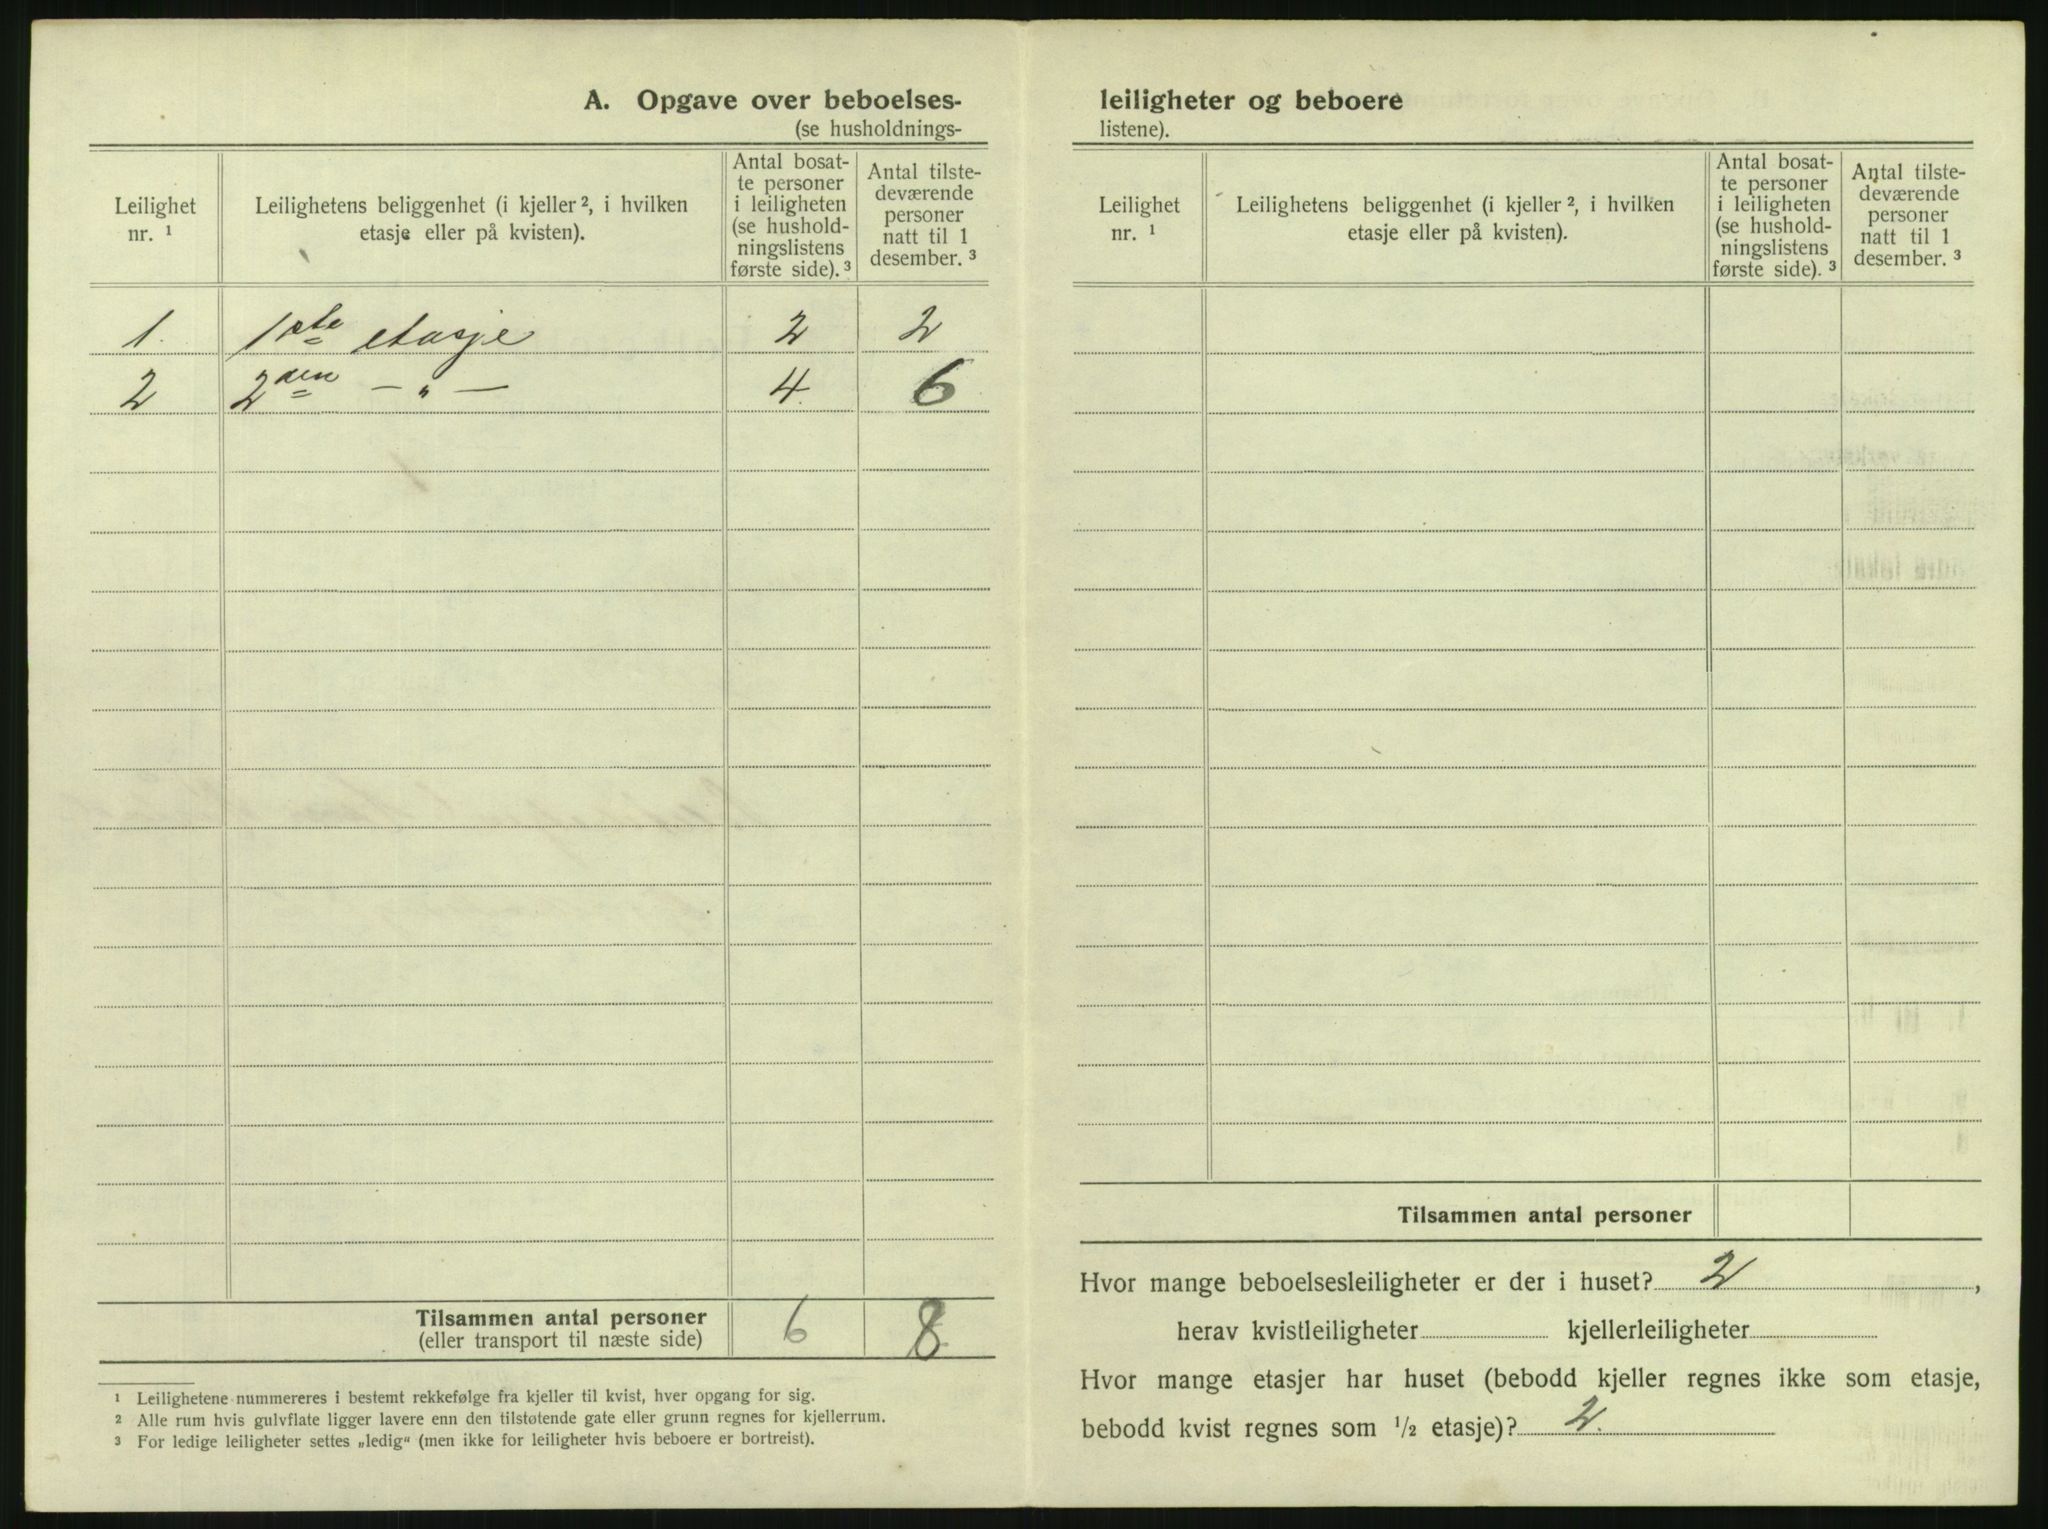 A. Opgave over beboelses-
(se husholdnings-
Leilighet
nr. 1
Leilighetens beliggenhet (i kjeller 2, i hvilken
etasje eller på kvisten).
Antal bosat-
te personer
i leiligheten
(se hushold-
ningslistens
første side). 3
Antal tilste-
deværende
personer
natt til 1
desember. 3
1. 1ste etasje 2 2
2 2den — „ — 4. 6
Tilsammen antal personer 6 8
(eller transport til næste side)
1 Leilighetene nummereres i bestemt rekkefølge fra kjeller til kvist, hver opgang for sig.
2 Alle rum hvis gulvflate ligger lavere enn den tilstøtende gate eller grunn regnes for kjellerrum.
3 For ledige leiligheter settes „ledig“ (men ikke for leiligheter hvis beboere er bortreist).
leiligheter og beboere
listene).
Leilighet
nr. 1
Leilighetens beliggenhet (i kjeller 2, i hvilken
etasje eller på kvisten).
Antal bosat-
te personer
i leiligheten
(se hushold-
ningslistens
første side). 3
Antal tilste-
deværende
personer
natt til 1
desember. 3
Tilsammen antal personer
Hvor mange beboelsesleiligheter er der i huset? 2,
herav kvistleiligheter kjellerleiligheter
Hvor mange etasjer har huset (bebodd kjeller regnes ikke som etasje,
bebodd kvist regnes som 1/2 etasje)? 2.